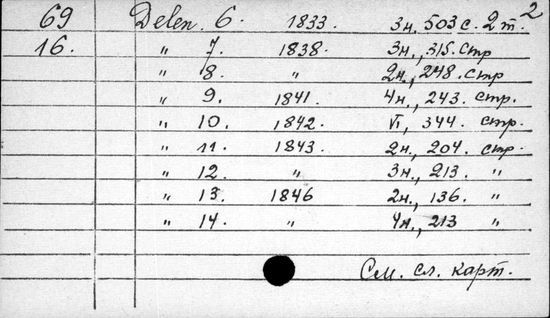 2
69 Delen. 6. 1833. 3н. 503 с. 2 т.
16. " 7. 1838. 3н., 315. стр
" 8. " 2н., 248. стр
" 9. 1841. 4н., 243. стр.
" 10. 1842. VI, 344. стр.
" 11. 1843. 2н., 204. стр.
" 12. " 3н., 213. "
" 13. 1846 2н., 136. "
" 14. " 4н., 213 "
См. сл. карт.